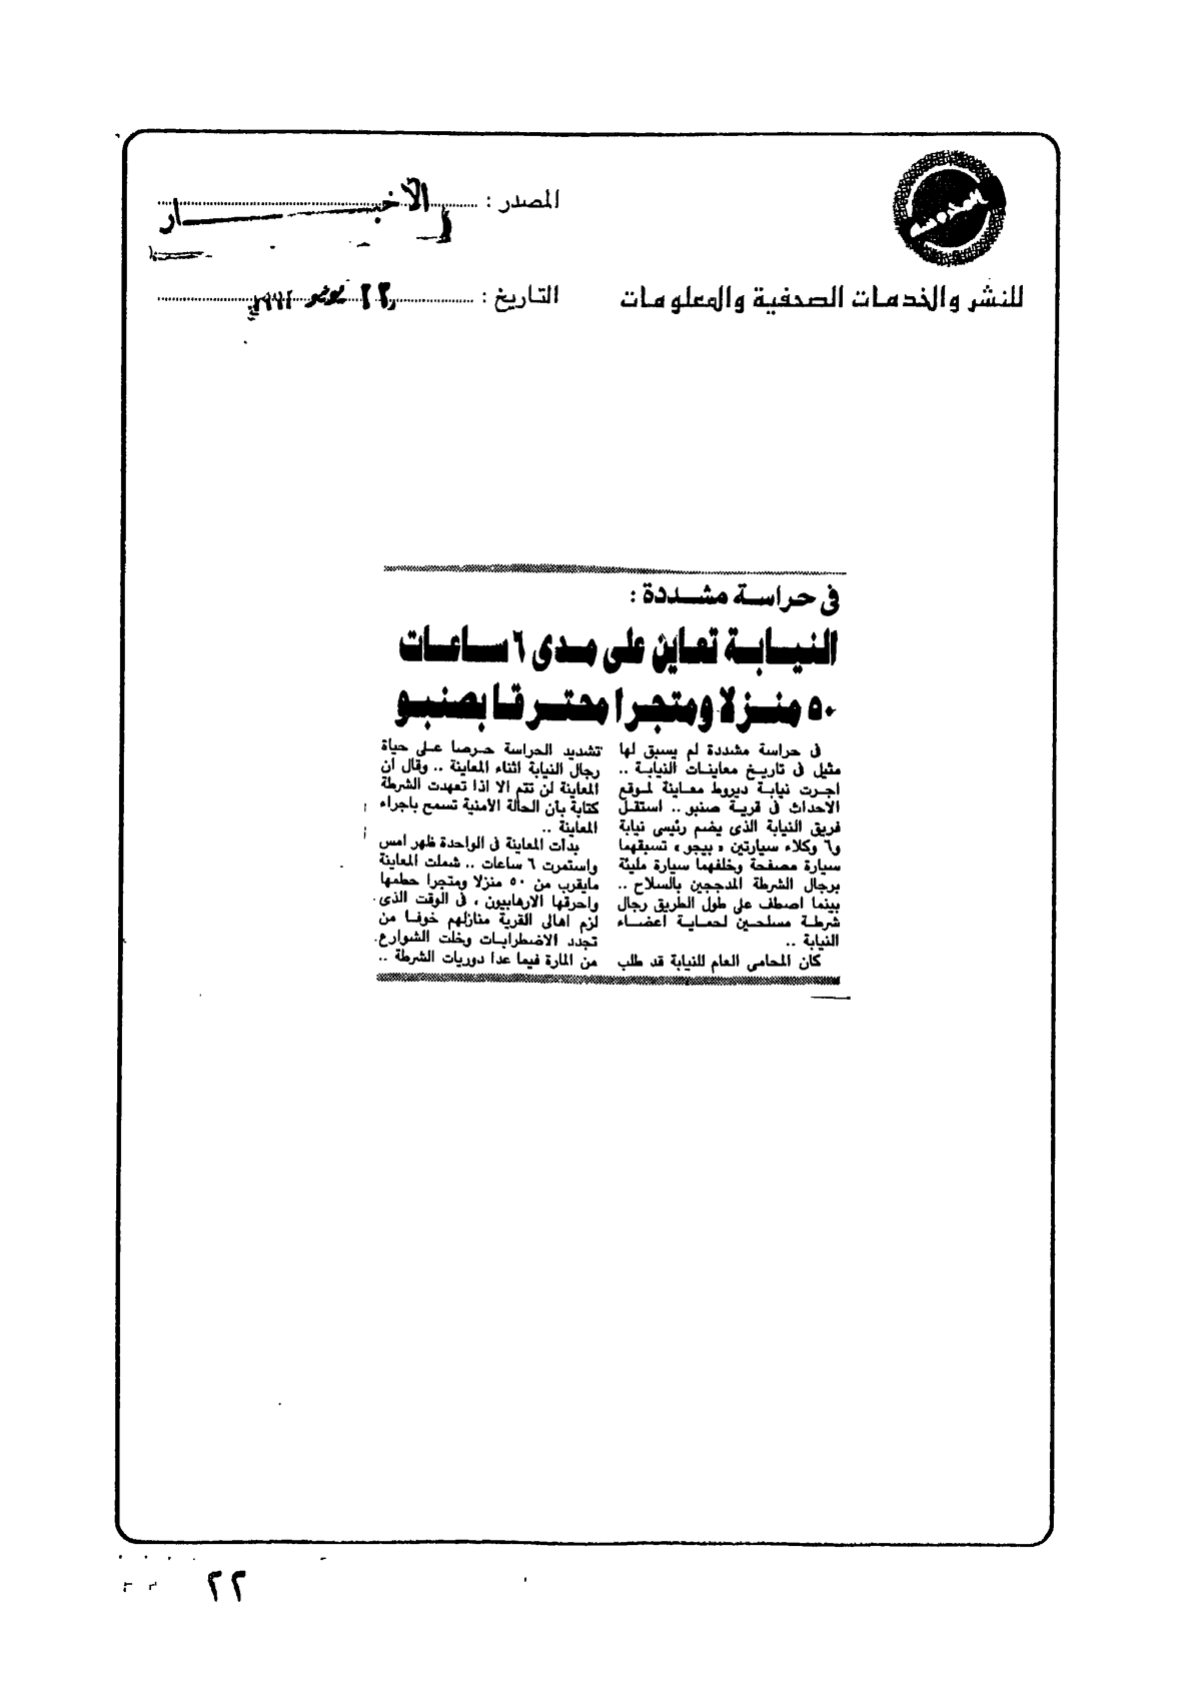 المصدر : الأخبار
للنشر والخدمات الصحفية والمعلومات
التاريخ : ٢٢ يونيو ١٩٩٢
فى حراسة مشددة :
النيابة تعاين على مدى ٦ ساعات
٥٠ منزلا ومتجرا محترقا بصنبو
فى حراسة مشددة لم يسبق لها
مثيل فى تاريخ معاينات النيابة ..
اجرت نيابة ديروط معاينة لموقع
الاحداث فى قرية صنبو .. استقل
فريق النيابة الذى يضم رئيسى نيابة
و٦ وكلاء سيارتين « بيجو » تسبقهما
سيارة مصفحة وخلفهما سيارة مليئة
برجال الشرطة المدججين بالسلاح ..
بينما اصطف على طول الطريق رجال
شرطة مسلحين لحماية اعضاء
النيابة ..
كان المحامى العام للنيابة قد طلب
تشديد الحراسة حرصا على حياة
رجال النيابة اثناء المعاينة .. وقال ان
المعاينة لن تتم الا اذا تعهدت الشرطة
كتابة بأن الحالة الأمنية تسمح باجراء
المعاينة ..
بدأت المعاينة فى الواحدة ظهر امس
واستمرت ٦ ساعات .. شملت المعاينة
مايقرب من ٥٠ منزلا ومتجرا حطمها
واحرقها الارهابيون ، فى الوقت الذى
لزم اهالى القرية منازلهم خوفا من
تجدد الاضطرابات وخلت الشوارع
من المارة فيما عدا دوريات الشرطة ..
٢٢